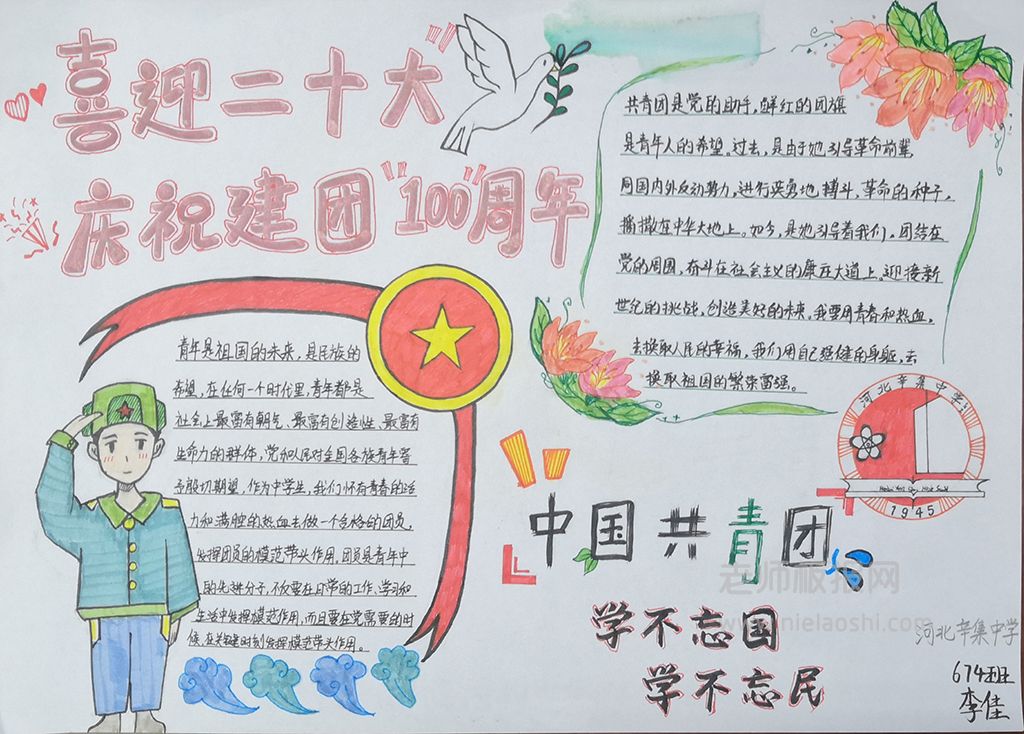 喜迎二十大
庆祝建团"100"周年
共青团是党的助手,鲜红的团旗
是青年人的希望。过去,是由于她引导革命前辈
同国内外反动势力,进行英勇地搏斗,革命的种子,
播撒在中华大地上。如今,是她引导着我们,团结在
党的周围,奋斗在社会主义的康庄大道上。迎接新
世纪的挑战,创造美好的未来,我要用青春和热血,
去换取人民的幸福,我们用自己强健的身躯,去
换取祖国的繁荣富强。
青年是祖国的未来,是民族的
希望,在任何一个时代里,青年都是
社会上最富有朝气、最富有创造性、最富有
生命力的群体,党和人民对全国各族青年寄
予殷切期望,作为中学生,我们怀有青春的活
力和满腔的热血去做一个合格的团员,
发挥团员的模范带头作用,团员是青年中
的先进分子,不仅要在日常的工作、学习和
生活中发挥模范作用,而且要在党需要的时
候,在关键时刻发挥模范带头作用。
河北辛集中学
1945
中国共青团
学不忘国
学不忘民
老师板报网
河北辛集中学
674班
李佳